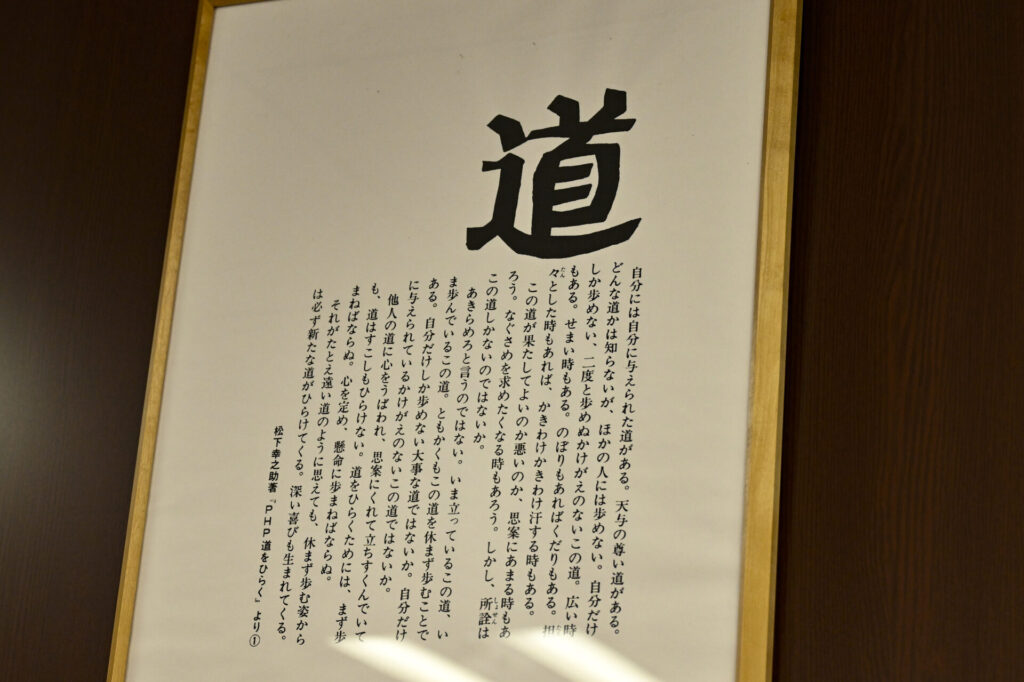 道
自分には自分に与えられた道がある。天与の尊い道がある。
どんな道かは知らないが、ほかの人には歩めない。自分だけ
しか歩めない、二度と歩めぬかけがえのないこの道。広い時
もある。せまい時もある。のぼりもあればくだりもある。坦
たん
々とした時もあれば、かきわけかきわけ汗する時もある。
この道が果たしてよいのか悪いのか、思案にあまる時もあ
ろう。なぐさめを求めたくなる時もあろう。しかし、所詮は
しょせん
この道しかないのではないか。
あきらめろと言うのではない。いま立っているこの道、い
ま歩んでいるこの道。ともかくもこの道を休まず歩むことで
ある。自分だけしか歩めない大事な道ではないか。自分だけ
に与えられているかけがえのないこの道ではないか。
他人の道に心をうばわれ、思案にくれて立ちすくんでいて
も、道はすこしもひらけない。道をひらくためには、まず歩
まねばならぬ。心を定め、懸命に歩まねばならぬ。
それがたとえ遠い道のように思えても、休まず歩む姿から
は必ず新たな道がひらけてくる。深い喜びも生まれてくる。
松下幸之助著「PHP道をひらく」より①